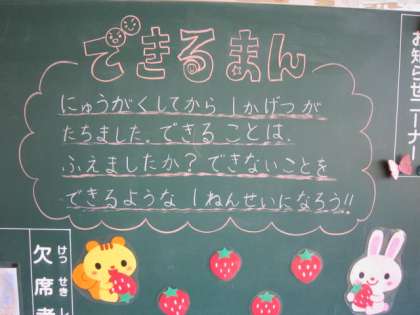 できるまん
にゅうがくしてから1かげつが
たちました。できることは、
ふえましたか？できないことを
できるような1ねんせいになろう!!
お知らせコーナー
けっせきし
欠席者